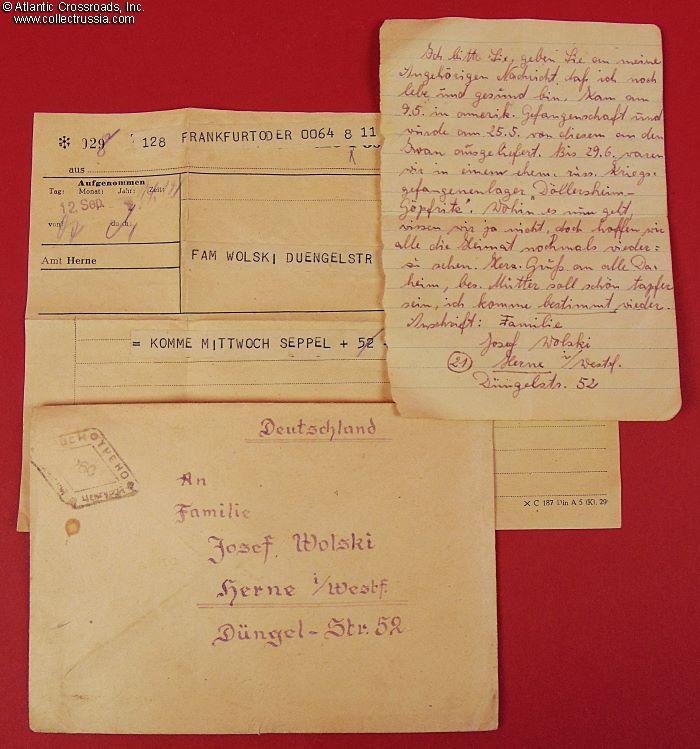 © Atlantic Crossroads, Inc.
www.collectrussia.com
Ich bitte Sie, geben Sie an meine
Angehörigen Nachricht, daß ich noch
lebe und gesund bin. Kam am
9.5. in amerik. Gefangenschaft und
wurde am 25.5. von diesem an den
Iwan ausgeliefert. Bis 29.6. waren
wir in einem ehem. russ. Kriegs-
gefangenenlager "Döllersheim-
Göpfritz". Wohin es nun geht,
wissen wir ja nicht, doch hoffen wir
alle die Heimat nochmals wieder=
zu sehen. Herz. Gruß an alle Da-
heim, bes. Mutter soll schön tapfer
sein, ich komme bestimmt wieder.
Anschrift: Familie
Josef Wolski
(21) Herne i/Westf.
Düngelstr. 52
128 FRANKFURTODER 0064 8 11
aus
Aufgenommen
Tag: Monat: Jahr: Zeit:
12. Sep.
von: durch:
Amt Herne
FAM WOLSKI DUENGELSTR
= KOMME MITTWOCH SEPPEL + 52
× C 187 Din A 5 (Kl. 29
Deutschland
An
Familie
Josef Wolski
Herne i/Westf.
Düngel-Str. 52